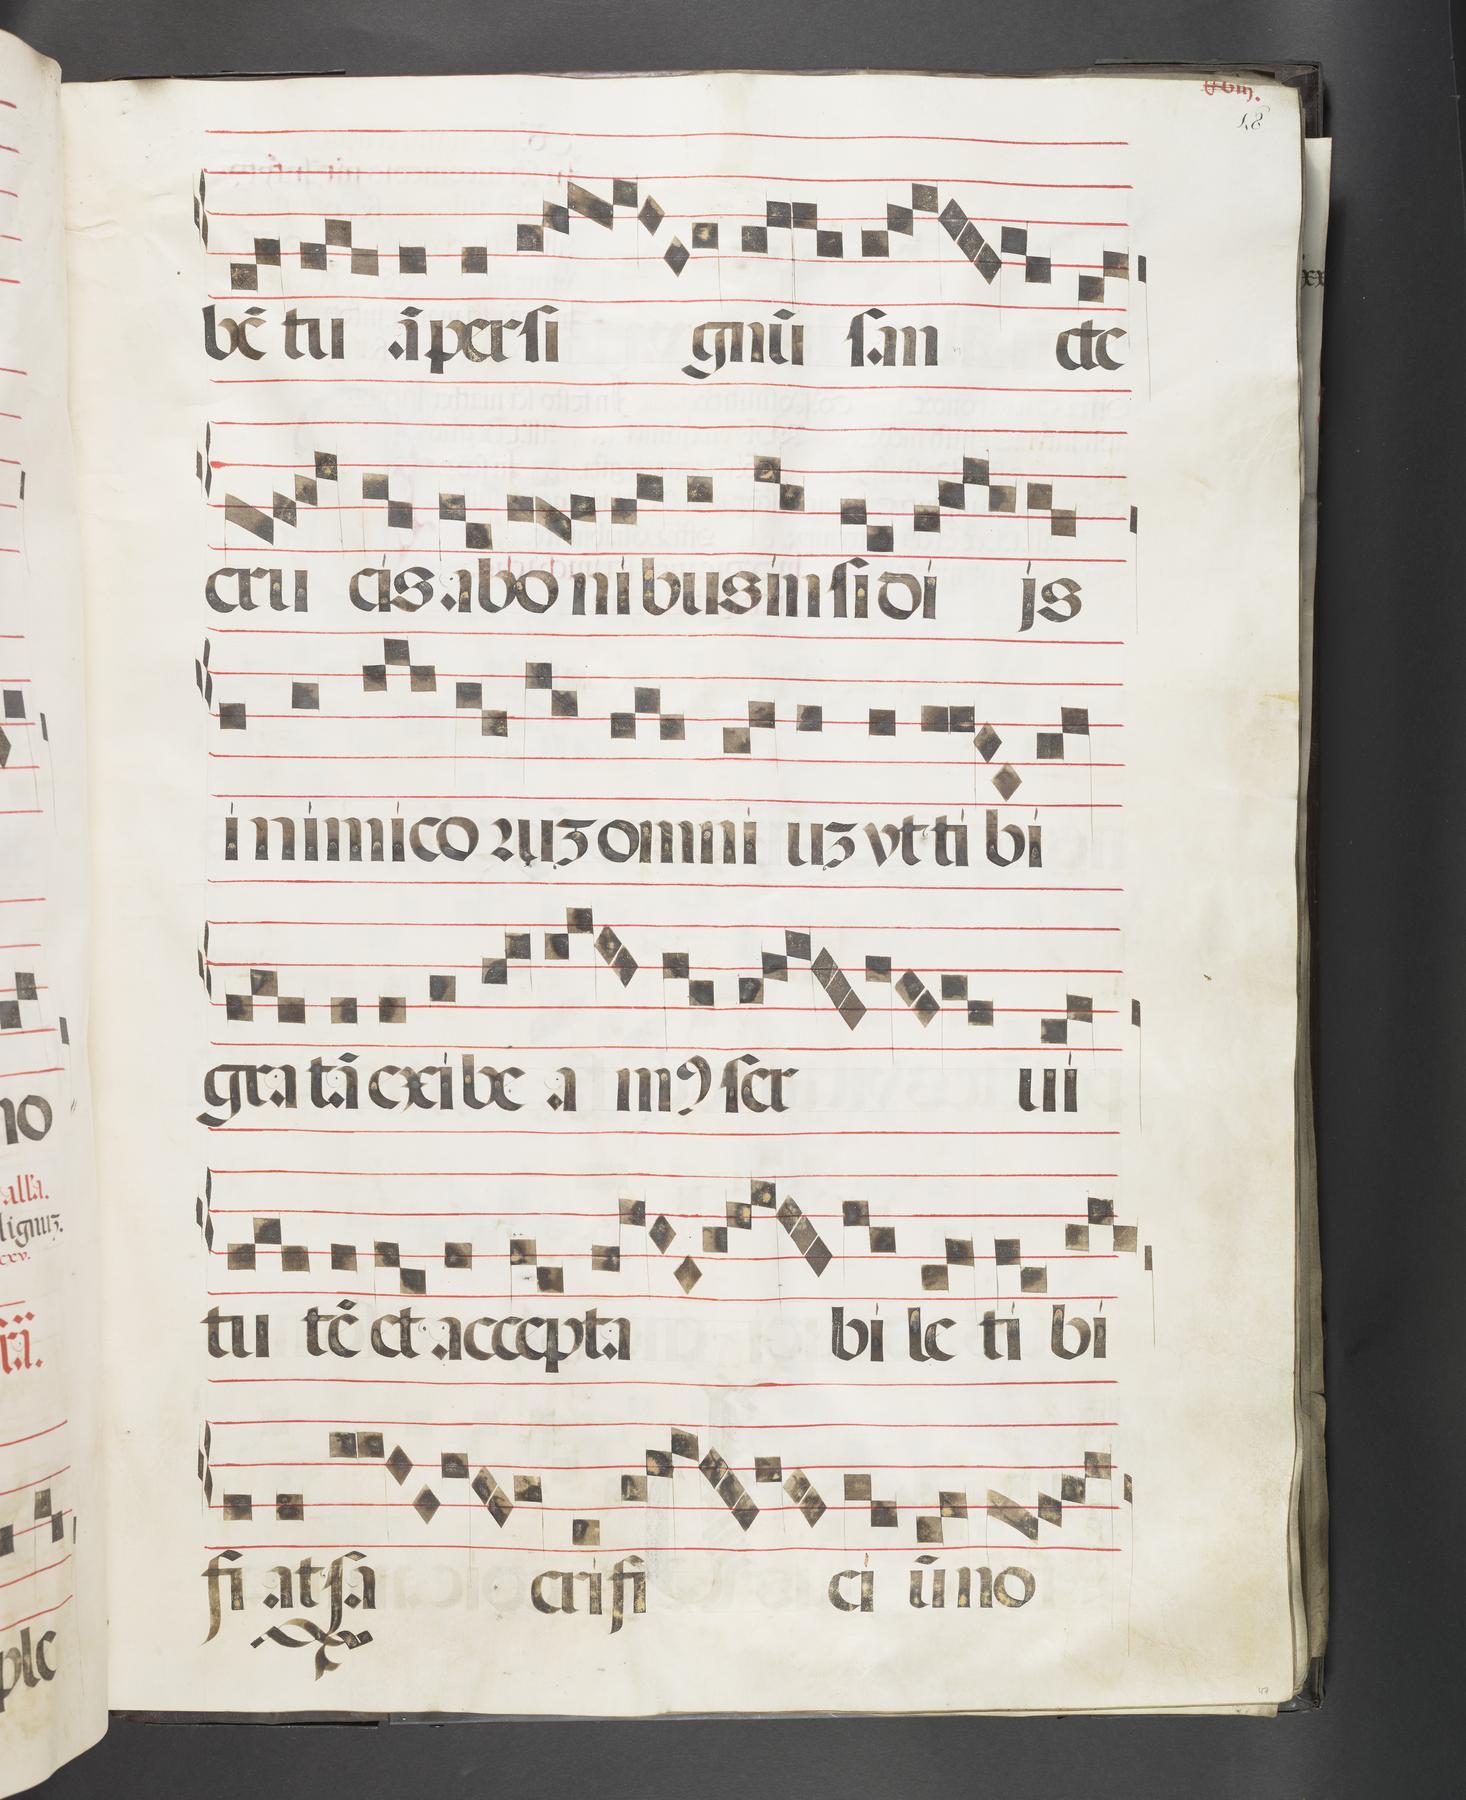 bē tu ā per si gnū san cte
cru cis ab o ni bus in si di js
i ni mi co ꝛuʒ omni uʒ vt ti bi
gra tā exi be a mꝰ ser ui
tu tē et accepta bi le ti bi
fi at sa crifi ci ū no
18
no
all'a.
lignuʒ.
cxv.
ple